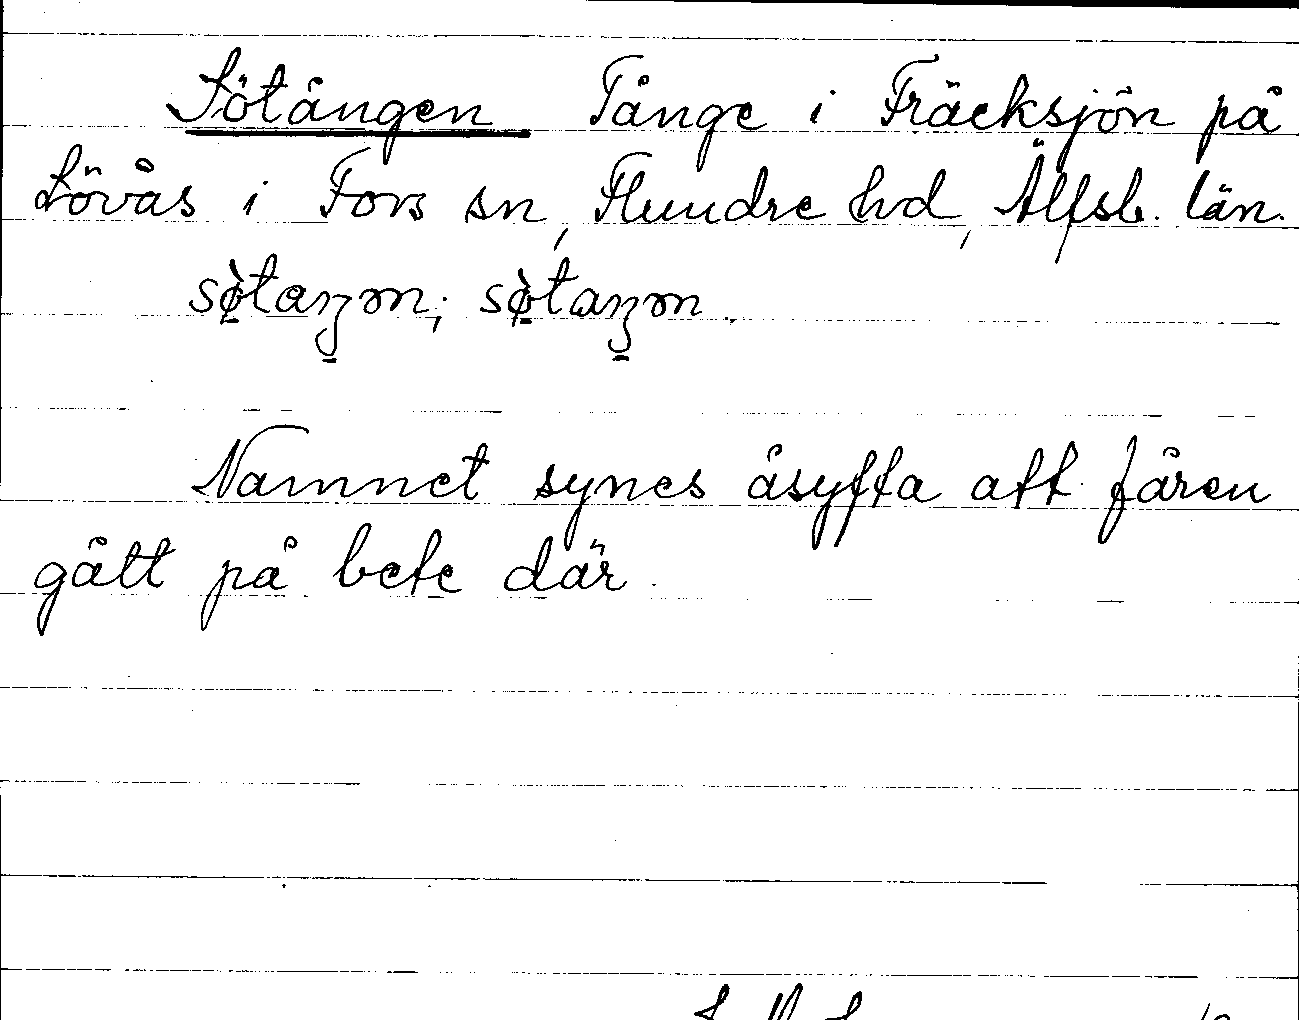 Sötången Tånge i Fräcksjön på
Lövås i Fors sn, Flundre hd, Älfsb. län.
Namnet synes åsyfta att fåren
gått på bete där.